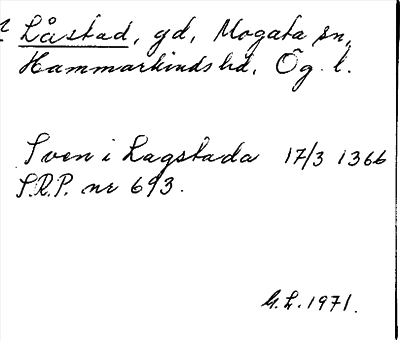 Låstad, gd, Mogata sn,
Hammarkinds hd, Ög. l.
Sven i Lagstada 17/3 1366
S.R.P. nr 693.
G.L. 1971.